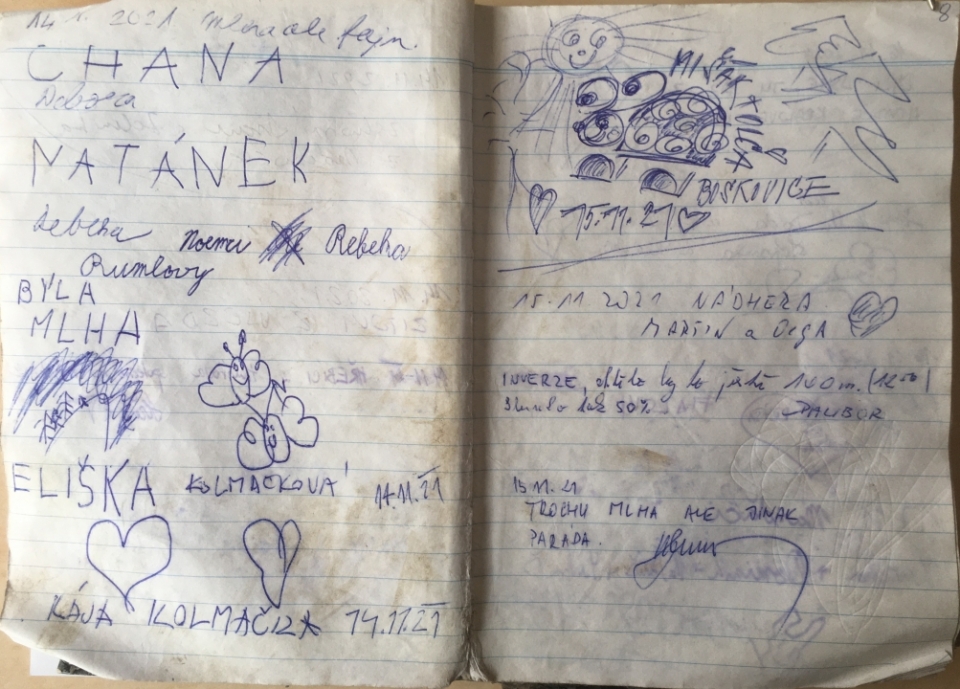 14. 11. 2021 mlha ale fajn.
CHANA
Debora
NATÁNEK
Rebeka Noemi Rebeka
Rumlovy
BYLA
MLHA
ELIŠKA KOLMAČKOVÁ 14.11.21
KÁJA KOLMAČKA 14.11.21
8
MIŠÁK + OLČA
BOSKOVICE
15.11.21
15.11.2021 NÁDHERA
MARTIN a OLGA
INVERZE, chtělo by to ještě 100 m. (12⁰⁰)
50% DALIBOR
15.11.21
TROCHU MLHA ALE JINAK
PARÁDA.